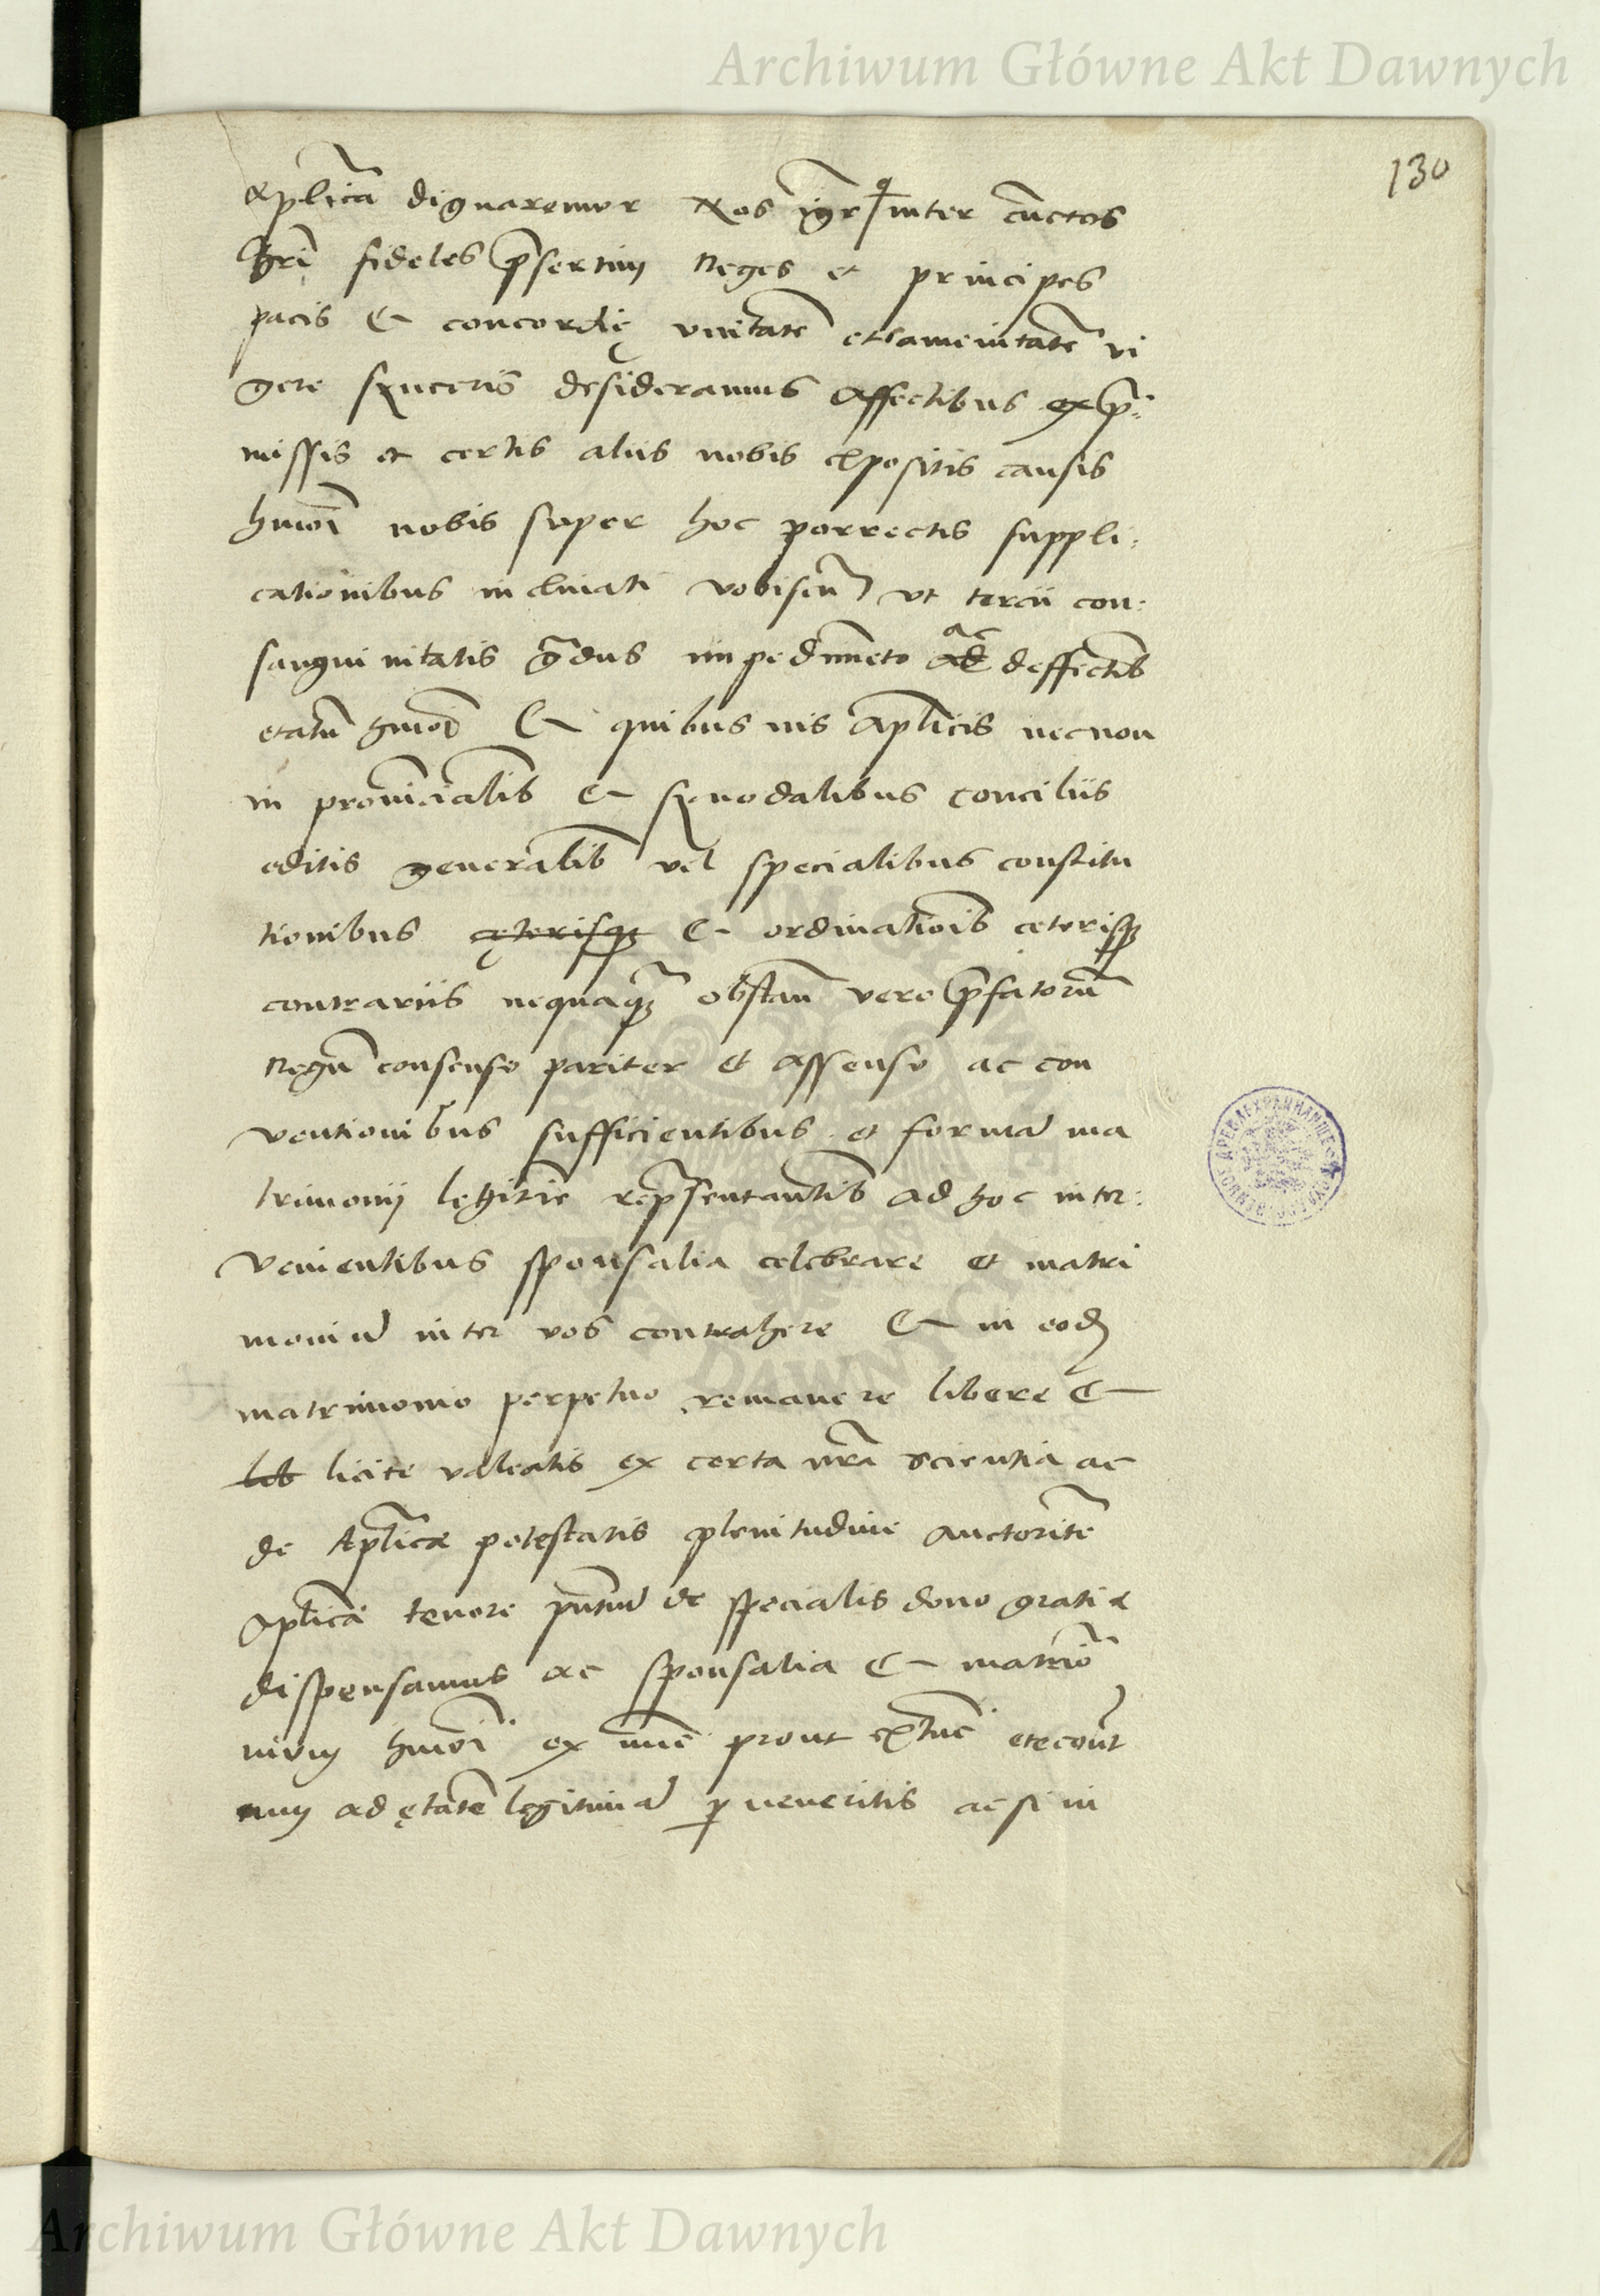 Archiwum Główne Akt Dawnych
130
aplica dignaremur Nos igr q inter cunctos
xpri fideles presertim Reges et principes
pacis & concordię unitate et amenitate vi
gere synceris desideramus affectibus ex pre:
missis et certis aliis nobis expositis causis
hmoi nobis super hoc porrectis suppli:
cationibus inclinati vobiscu ut tercii con:
sanguinitatis gradus impedimeto ac deffectib
etatu hmoi & quibusvis aplicis necnon
in provincialib & synodalibus conciliis
editis generalib vel specialibus constitu
tionibus cęterisq & ordinationib ceterisq
contrariis nequaq obstan vero prefatoru
Regu consensu pariter et assensu ac con
ventionibus sufficientibus et forma ma
trimonij legitime representantib ad hoc inter:
venientibus sponsalia celebrare et matri
moniu inter vos contrahere & in eod
matrimonio perpetuo remanere libere &
lib licite valeatis ex certa nra scientia ac
de Aplice potestatis plenitudine auctorite
aplica tenore pntiu de specialis dono gratie
dispensamus ac sponsalia & matrio
nium hmoi ex nuc prout extuc
cum ad ętate legitima perveneritis ac si in
Archiwum Główne Akt Dawnych